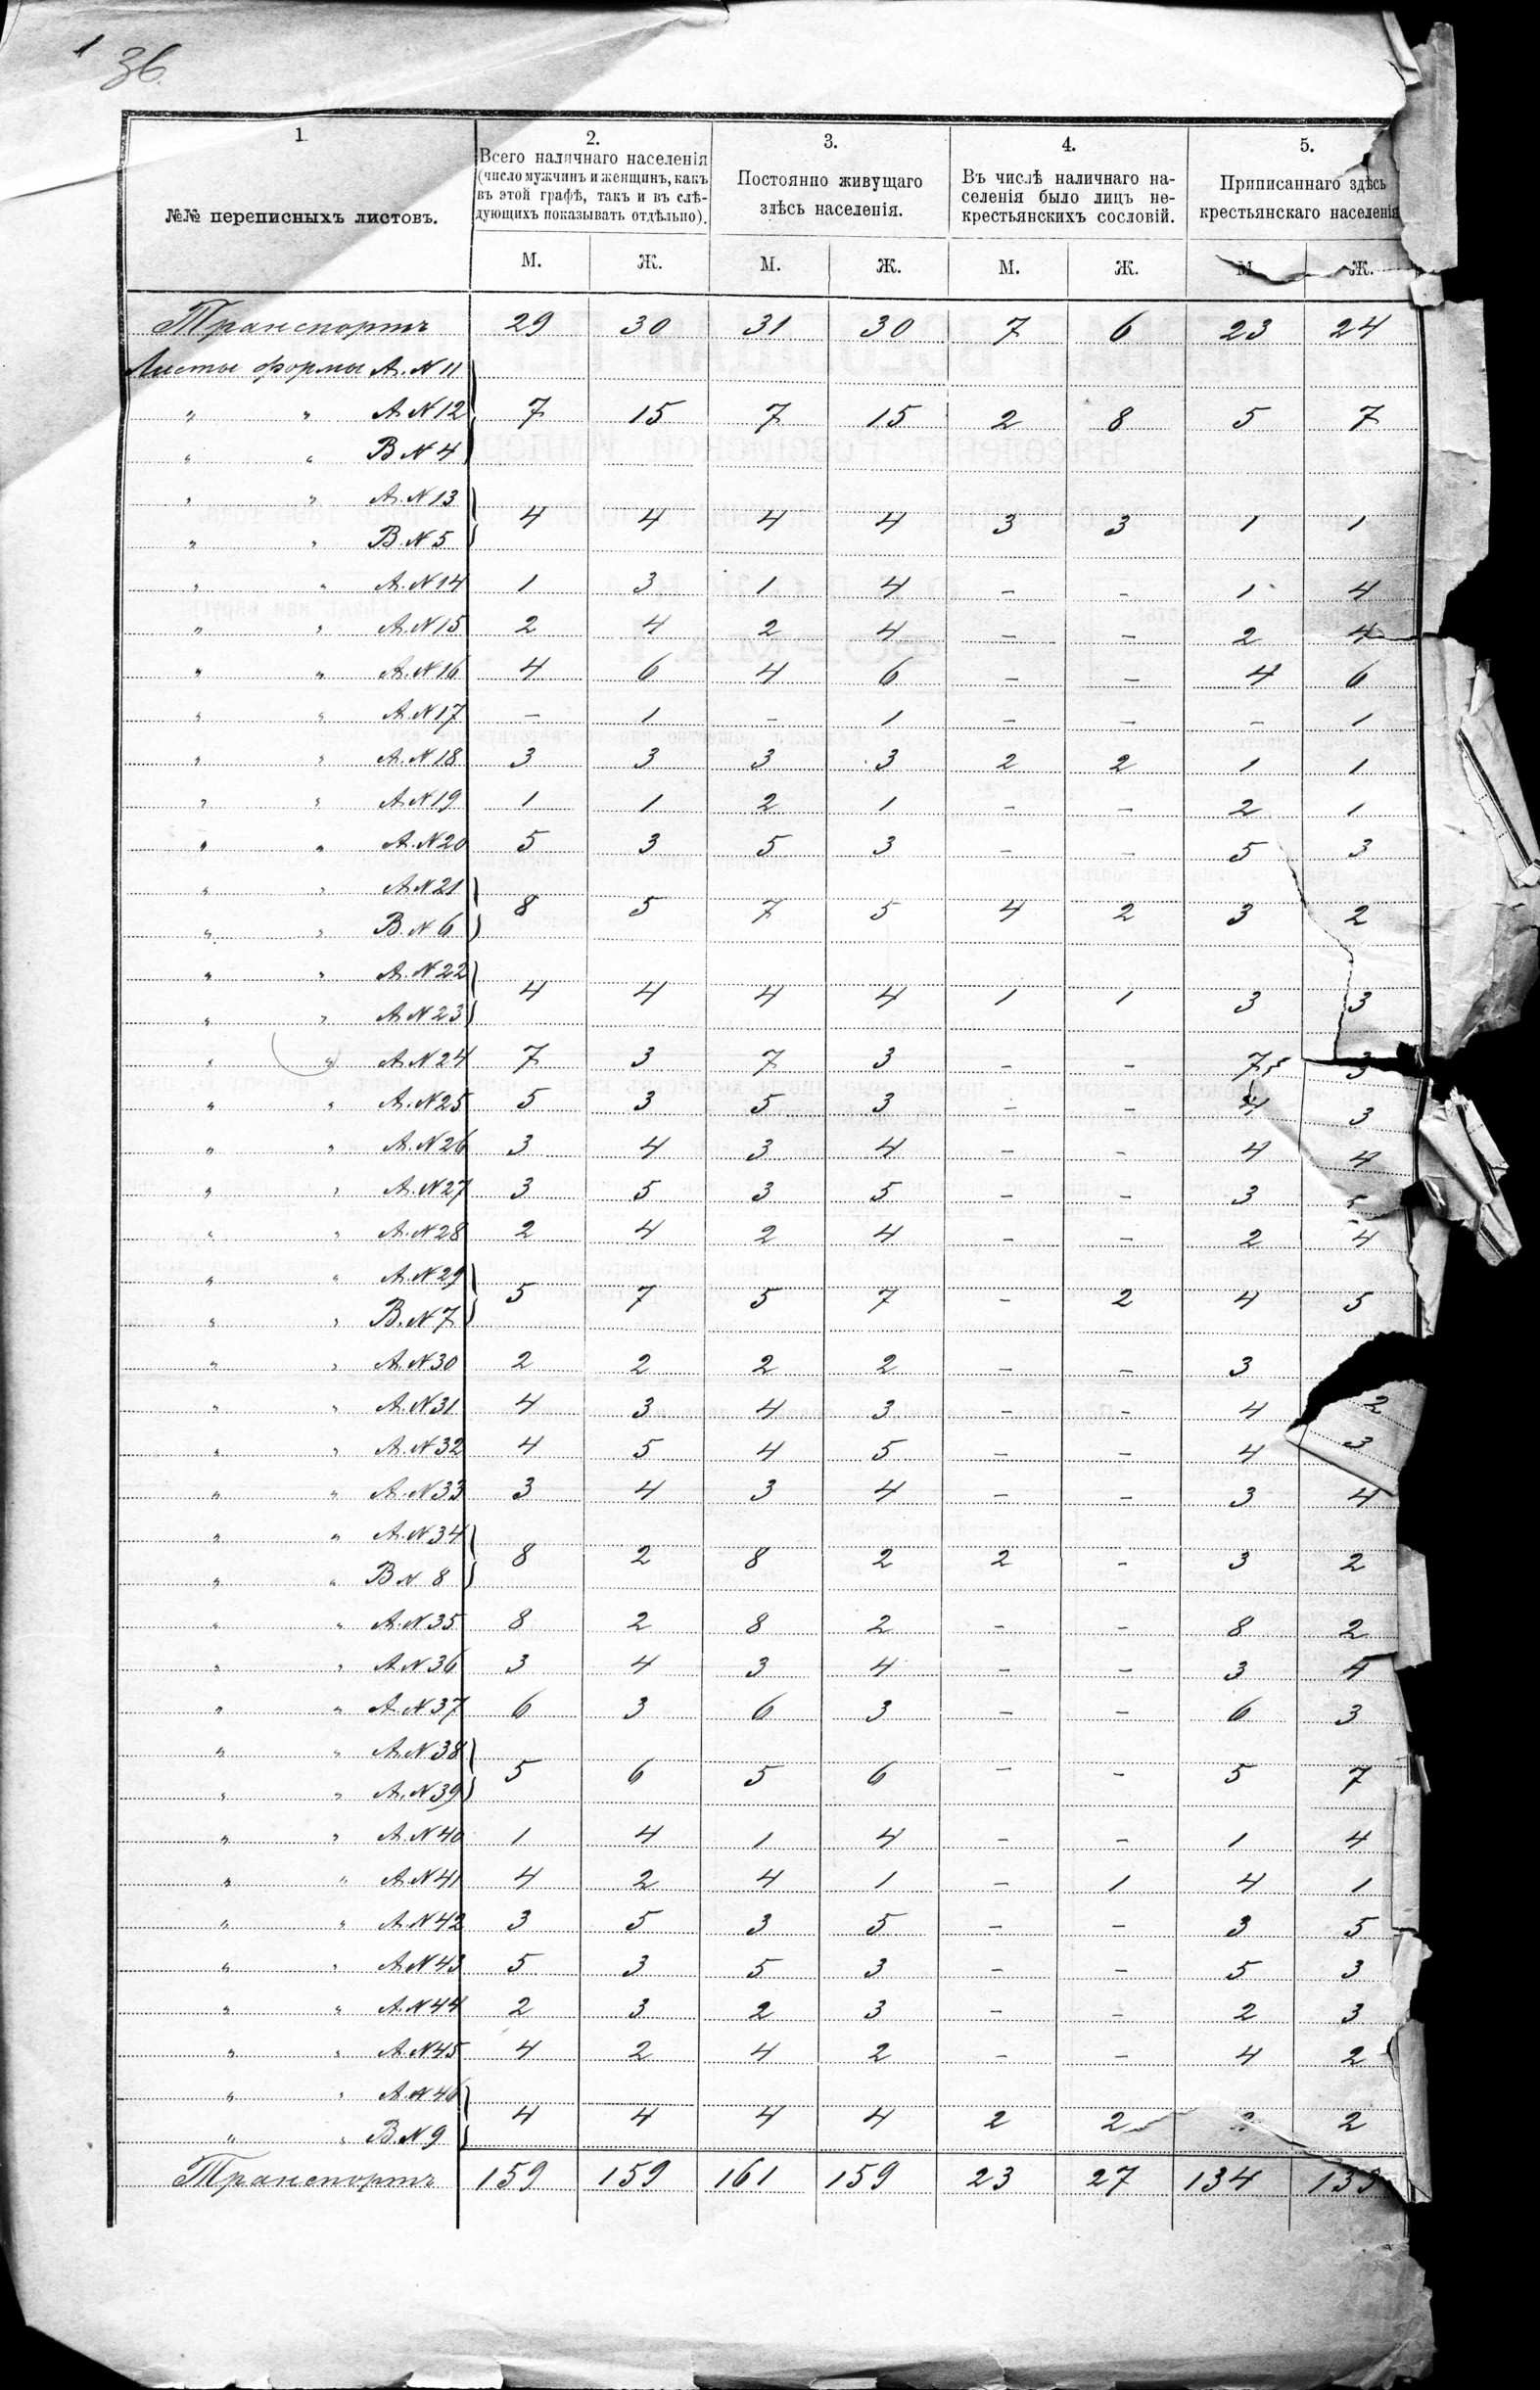 1 36
1.
№№ переписныхъ листовъ.
2.
Всего наличнаго населенія
(число мужчинъ и женщинъ, какъ
въ этой графѣ, такъ и въ слѣ-
дующихъ показывать отдѣльно).
3.
Постоянно живущаго
здѣсь населенія.
4.
Въ числѣ наличнаго на-
селенія было лицъ не-
крестьянскихъ сословій.
5.
Приписаннаго здѣсь
крестьянскаго населенія
М. Ж. М. Ж. М. Ж. М. Ж.
Транспортъ 29 30 31 30 7 6 23 24
Листы формы А. N 11
" " А N 12 7 15 7 15 2 8 5 7
" " В N 4
" " А. N 13
4 4 4 4 3 3 1 1
" " В. N 5
" " А. N 14 1 3 1 4 - - 1 4
" " А. N 15 2 4 2 4 - - 2 4
" " А. N 16 4 6 4 6 - - 4 6
" " А. N 17 - 1 - 1 - - - 1
" " А. N 18 3 3 3 3 2 2 1 1
" " А. N 19 1 1 2 1 - - 2 1
" " А. N 20 5 3 5 3 - - 5 3
" " А N 21
8 5 7 5 4 2 3 2
" " В. N 6
" " А. N 22
4 4 4 4 1 1 3 3
" " А N 23
" " А. N 24 7 3 7 3 - - 7 3
" " А. N 25 5 3 5 3 - - 4 3
" " А. N 26 3 4 3 4 - - 4 4
" " А. N 27 3 5 3 5 - - 3 5
" " А. N 28 2 4 2 4 - - 2 4
" " А. N 29
5 7 5 7 - 2 4 5
" " В. N 7
" " А. N 30 2 2 2 2 - - 3
" " А. N 31 4 3 4 3 - - 4 2
" " А. N 32 4 5 4 5 - - 4 3
" " А. N 33 3 4 3 4 - - 3 4
" " А. N 34
8 2 8 2 2 - 3 2
" " В N 8
" " А. N 35 8 2 8 2 - - 8 2
" " А N 36 3 4 3 4 - - 3 4
" " А. N 37 6 3 6 3 - - 6 3
" " А. N 38
5 6 5 6 - - 5 7
" " А. N 39
" " А. N 40 1 4 1 4 - - 1 4
" " А. N 41 4 2 4 1 - 1 4 1
" " А. N 42 3 5 3 5 - - 3 5
" " А N 43 5 3 5 3 - - 5 3
" " А. N 44 2 3 2 3 - - 2 3
" " А. N 45 4 2 4 2 - - 4 2
" " А. N 46
4 4 4 4 2 2 2
" " В. N 9
Транспортъ 159 159 161 159 23 27 134 133